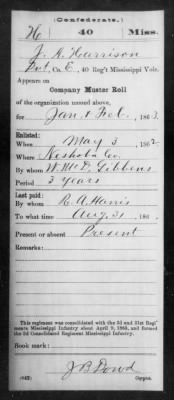 (Confederate.)
H 40 Miss.
J. A. Harrison
Pvt, Co. E, 40 Reg't Mississippi Vols.
Appears on
Company Muster Roll
of the organization named above,
for Jan & Feb, 1863.
Enlisted:
When May 3, 1862.
Where Neshoba Co.
By whom W. McD. Gibbens
Period 3 years
Last paid:
By whom R. A. Harris
To what time Aug. 31, 186
Present or absent Present
Remarks:
This regiment was consolidated with the 3d and 31st Regiments
Mississippi Infantry about April 9, 1865, and formed
the 3d Consolidated Regiment Mississippi Infantry.
Book mark:
(642) J B Dowd
Copyist.